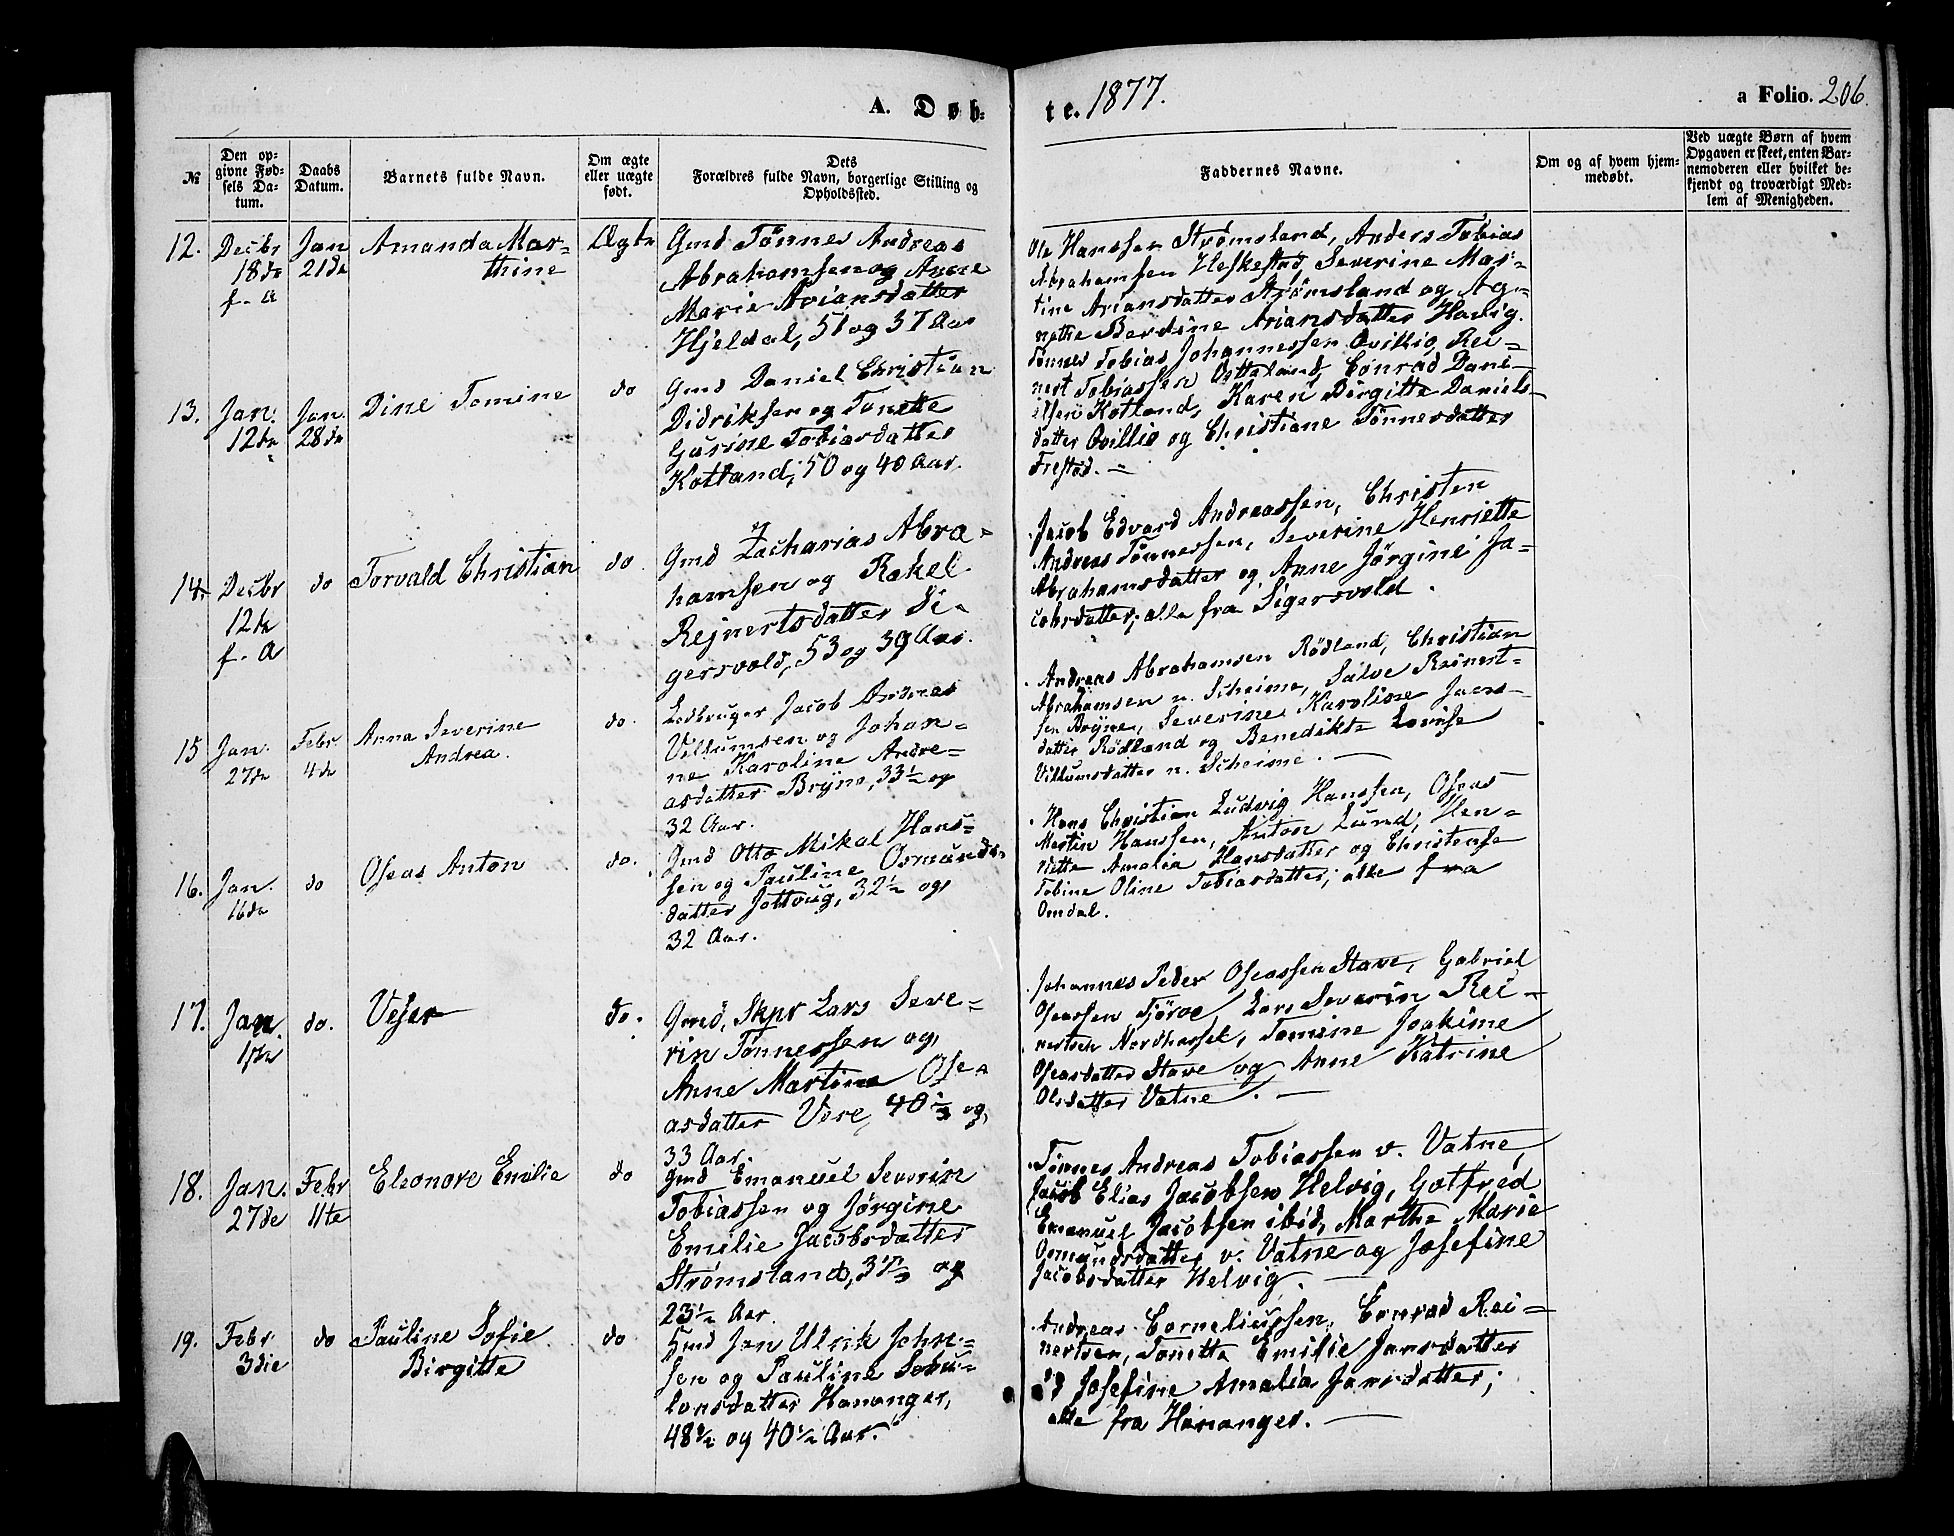 A. Døb-
te. 1877.
a Folio. 206.
№
Den op-
givne Fød-
sels Da-
tum.
Daabs
Datum.
Barnets fulde Navn.
Om ægte
eller uægte
født.
Dets
Forældres fulde Navn, borgerlige Stilling og
Opholdssted.
Faddernes Navne.
Om og af hvem hjem-
medøbt.
Ved uægte Børn af hvem
Opgaven er skeet, enten Bar-
nemoderen eller hvilket be-
kjendt og troværdigt Med-
lem af Menigheden.
12.
Decbr
18de
f. A
Jan
21de
Amanda Mar-
thine
Ægte
Gmd Tönnes Andreas
Abrahamsen og Anne
Marie Ariansdatter
Hjeldal, 51 og 37 Aar
Ole Hanssen Strømsland, Anders Tobias
Abrahamsen Heskestad, Severine Mar-
tine Ariansdatter Strømsland og Ag-
nethe Berdine Ariansdatter Hævig.
13.
Jan.
12te
Jan.
28de
Dine Tomine
do
Gmd Daniel Christian
Didriksen og Tonette
Gurine Tobiasdatter
Kolland, 50 og 40 Aar.
Tönnes Tobias Johannessen Qvillio, Rei-
nert Tobiassen, Conrad Dani-
elsen Kotland, Karen Birgitte Daniels-
datter Qvillio og Christiane Tönnesdatter
Frestad.
14.
Decbr
12te
f. A
do
Torvald Christian
do.
Gmd Zacharias Abra-
hamsen og Rakel
Rejnertsdatter Si-
gersvold, 53 og 39 Aar.
Jacob Edvard Andreassen, Christen
Andreas Tönnessen, Severine Henriette
Abrahamsdatter og Anne Jörgine Ja-
cobsdatter; alle fra Sigersvold.
15
Jan.
27de
Febr
4de
Anna Severine
Andrea.
do.
Ledbruger Jacob Andreas
Villumsen og Johan-
ne Karoline Andre-
asdatter Bryne, 33½ og
32 Aar.
Andreas Abrahamsen Rödland, Christian
Abrahamsen n. Scheime, Salve Reinert-
sen Bryne, Severine Karoline Jacobs-
datter Rödland og Benedikte Lovise
Villumsdatter n. Scheime.
16.
Jan.
16de
do
Oseas Anton
do.
Gmd Otto Mikal Hans-
sen og Pauline Osmunds-
datter Jöllvug, 32½ og
32 Aar.
Hans Christian Ludvig Hanssen, Oseas
Martin Hanssen, Anton Lund, Hen-
riette Amalia Hansdatter og Christense
Tobine Oline Tobiasdatter; alle fra
Omdal.
17.
Jan.
1ste
do.
Veser
do.
Gmd, Skpr Lars Seve-
rin Tönnessen og
Anne Martine Ose-
asdatter Vere, 40½ og
33 Aar.
Johannes Peder Oseassen Stave, Gabriel
Oseassen Tjörve, Lars Severin Rei-
nertsen Nordhassel, Tomine Joakime
Oseasdatter Stave og Anne Katrine
Olsdatter Vatne.
18.
Jan.
27de
Febr
11te
Eleonore Emilie
do
Gmd Emanuel Severin
Tobiassen og Jörgine
Emilie Jacobsdatter
Strømsland, 37½ og
23½ Aar.
Tönnes Andreas Tobiassen v. Vatne,
Jacob Elias Jacobsen Helvig, Gotfred
Emanuel Jacobsen ibid, Marthe Marie
Osmundsdatter v. Vatne og Josefine
Jacobsdatter Helvig.
19.
Febr
3die
do
Pauline Sofie
Birgitte
do
Hmd Jan Ulrik John-
sen og Pauline Sebu-
lonsdatter Hananger,
48½ og 40½ Aar.
Andreas Corneliussen, Conrad Rei-
nertsen, Tonette Emilie Jansdatter
og Josefine Amalia Jansdatter;
alle fra Hananger.